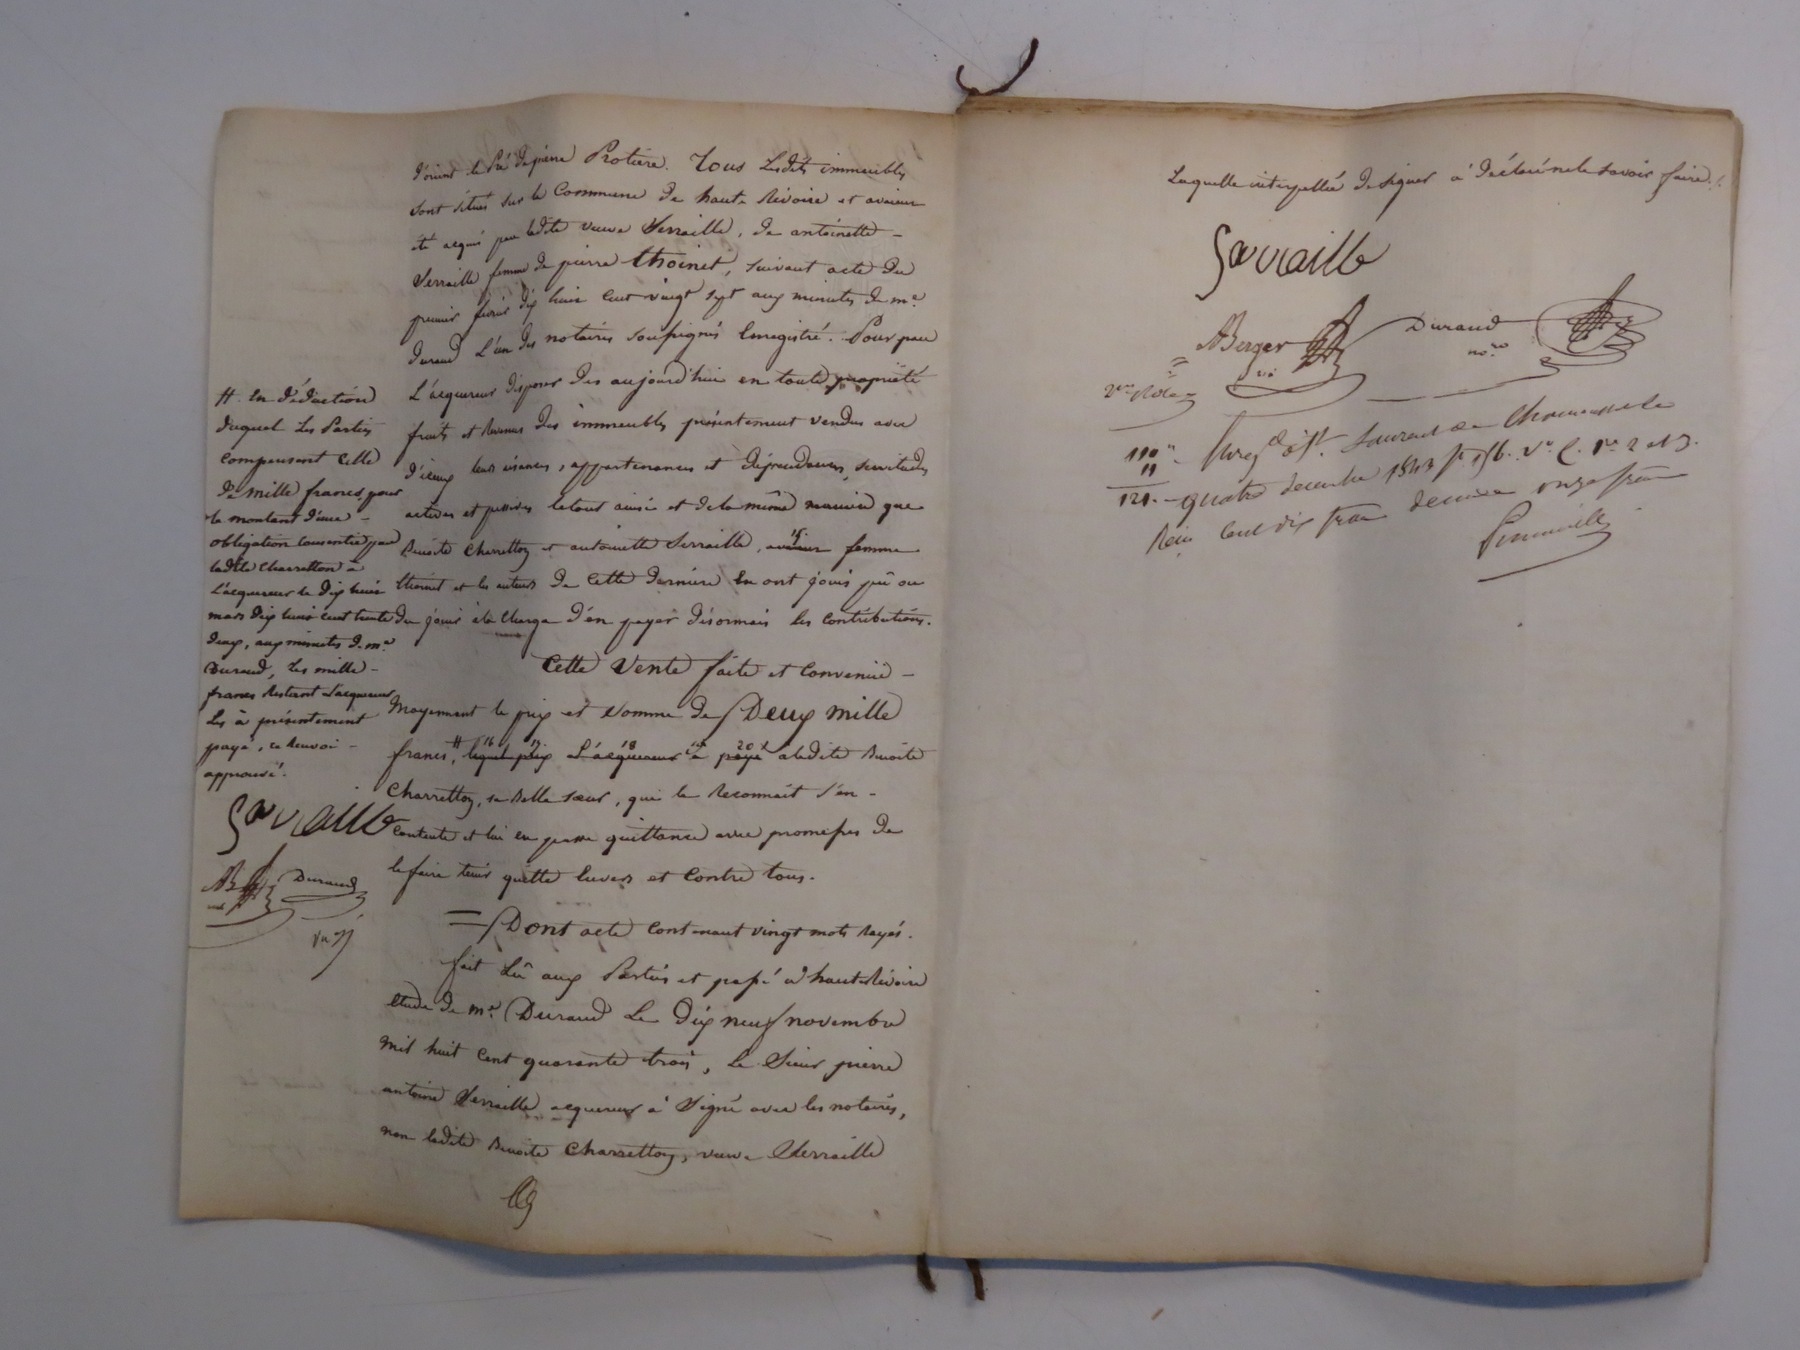 d'orient le Pré de pierre Protière. Tous lesdits immeubles
sont situés sur la Commune de haute Rivoire et avaient
été acquis par ladite veuve Serraille, de antoinette
Serraille femme de pierre thoinet, suivant acte du
premier février dix huit cent vingt sept aux minutes de me.
durand L'un des notaires soussignés Enregistré. Pour par
L'acquereur disposer des aujourd'hui en toute propriété
fruits et Revenus des immeubles présentement vendus avec
d'iceux leurs aisances, appartenances et dépendances, servitudes
actives et passives le tout ainsi et de la même manière que
Benoite Charretton et antoinette Serraille, femme
thoinet et les auteurs de Cette dernière En ont joui pû ou
du jouir à la Charge d'en payer désormais les Contributions.
Cette Vente faite et Convenüe
Moyennant le prix et Somme de Deux mille
francs, # lequel prix L'acquereur a payé à ladite Benoite
16 17 18 19 20
Charretton, sa Belle sœur, qui le Reconnait s'en
Contente et lui en passe quittance avec promesses de
le faire tenir quitte Envers et Contre tous.
= Dont acte Contenant vingt mots Rayés.
fait Lû aux Parties et passé à haute Rivoire
etude de me. Durand Le dix neuf novembre
Mil huit Cent quarante trois, Le Sieur pierre
antoine Serraille acquereur a Signé avec les notaires,
non ladite Benoite Charretton, veuve Serraille
# En déduction
duquel Les Parties
Compensent Celle
de Mille francs, pour
le montant d'une
obligation Consentie par
ladite Charretton à
L'acquereur le dix huit
mars dix huit cent trente
deux, aux minutes de me.
Durand, Les mille
francs Restant L'acquereur
Les à présentement
payé, ce Renvoi
approuvé.
Serraille
AB Durand
Laquelle interpellée de Signer a déclaré ne le savoir faire./.
Serraille
ABerger Durand
no.re
110
11
121.
Enreg. à St. Laurent de Chamousset le
quatre decembre 1843 fo 156. Vo. C. 1re 2 et 3.
Reçu Cent dix francs decime onze francs